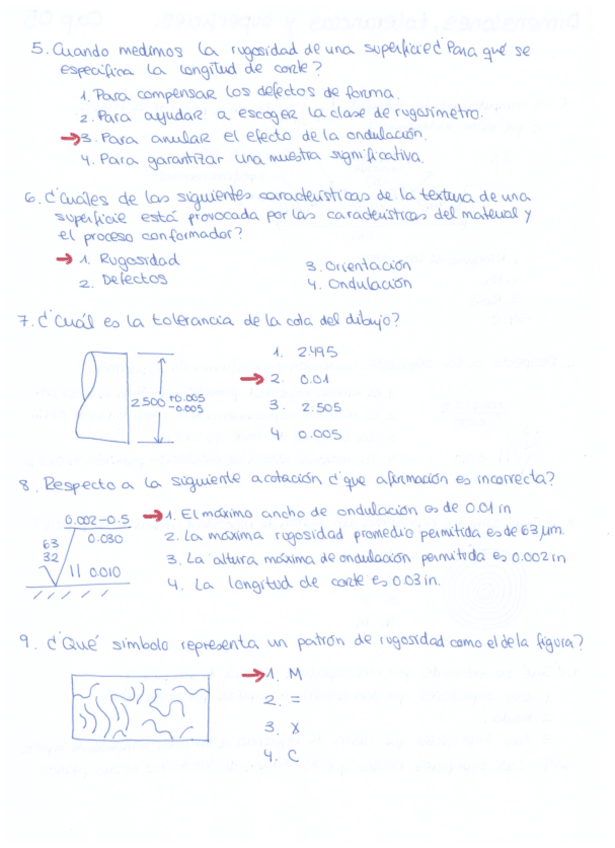 5. Cuando medimos la rugosidad de una superficie ¿Para qué se
especifica la longitud de corte?
1. Para compensar los defectos de forma.
2. Para ayudar a escoger la clase de rugosímetro.
3. Para anular el efecto de la ondulación.
4. Para garantizar una muestra significativa.
6. ¿Cuáles de las siguientes características de la textura de una
superficie está provocada por las características del material y
el proceso conformador?
1. Rugosidad
2. Defectos
3. Orientación
4. Ondulación
7. ¿Cuál es la tolerancia de la cota del dibujo?
2.500 +0.005
-0.005
1. 2.495
2. 0.01
3. 2.505
4. 0.005
8. Respecto a la siguiente acotación ¿que afirmación es incorrecta?
0.002-0.5
63 0.030
32
0.010
1. El máximo ancho de ondulación es de 0.01 in
2. La máxima rugosidad promedio permitida es de 63 µm.
3. La altura máxima de ondulación permitida es 0.002 in
4. La longitud de corte es 0.03 in.
9. ¿Qué símbolo representa un patrón de rugosidad como el de la figura?
1. M
2. =
3. X
4. C